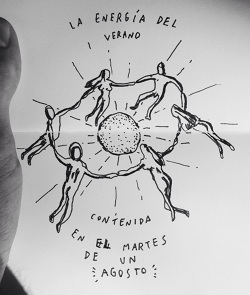 LA ENERGÍA DEL
VERANO
CONTENIDA
EN EL MARTES
DE UN
AGOSTO